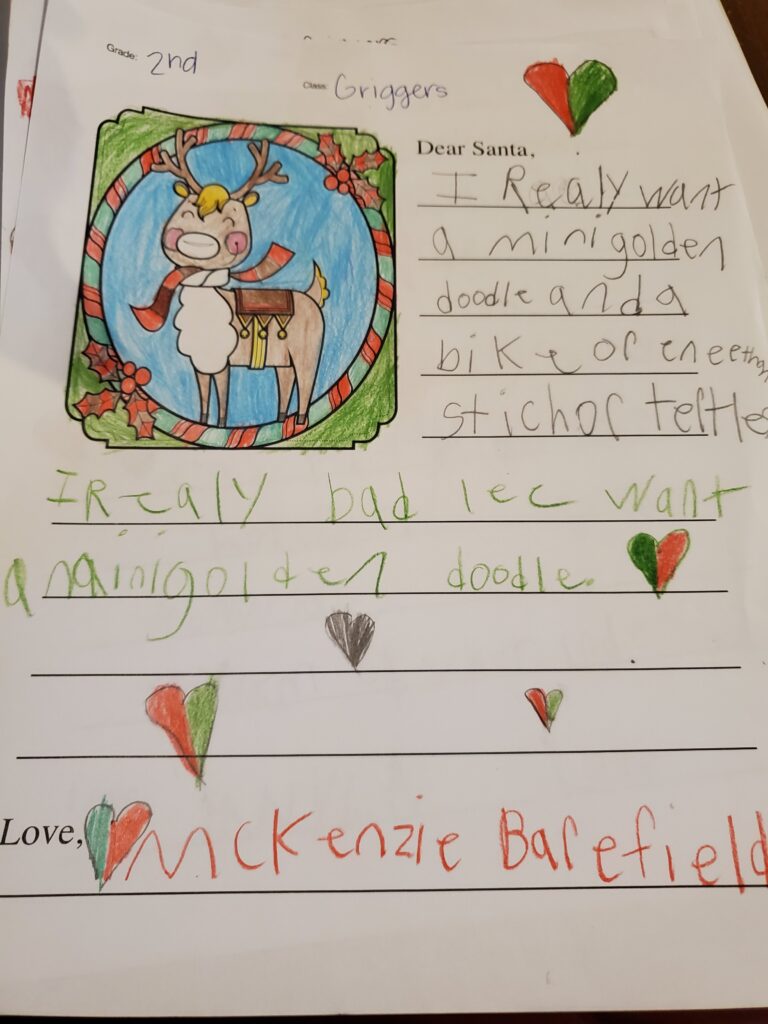 Grade: 2nd
Class: Griggers
Dear Santa,
I Realy want
a mini golden
doodle and a
bike or eneethang
stichor teltles
I Realy bad lee want
a mini golden doodle.
Love, McKenzie Barefield